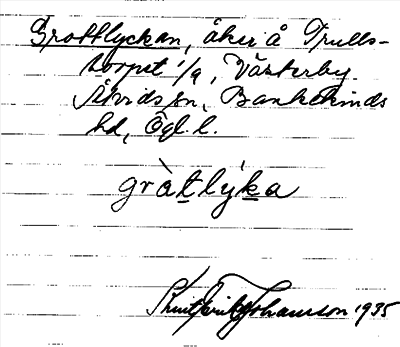 Grottlyckan, åker å Trulls-
torpet 1/4, Västerby.
Åtvids sn, Bankekinds
hd, Ögl. l.
gràtlýka
Johansson 1935